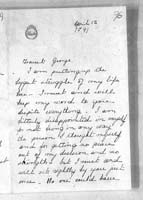 April 12
Dearest George
I am putting up the
biggest struggle of my life
but I must and will
keep my word to you
despite everything. I am
bitterly disappointed in myself
to not being in any way
the person I thought myself
and for getting no peace
out of my decision and no
strength but I must and
will act rightly by you just
once. No one could have